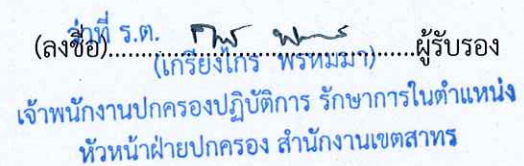 ว่าที่ ร.ต.
(ลงชื่อ)............................................ผู้รับรอง
(เกรียงไกร พรหมมา)
เจ้าพนักงานปกครองปฏิบัติการ รักษาการในตำแหน่ง
หัวหน้าฝ่ายปกครอง สำนักงานเขตสาทร